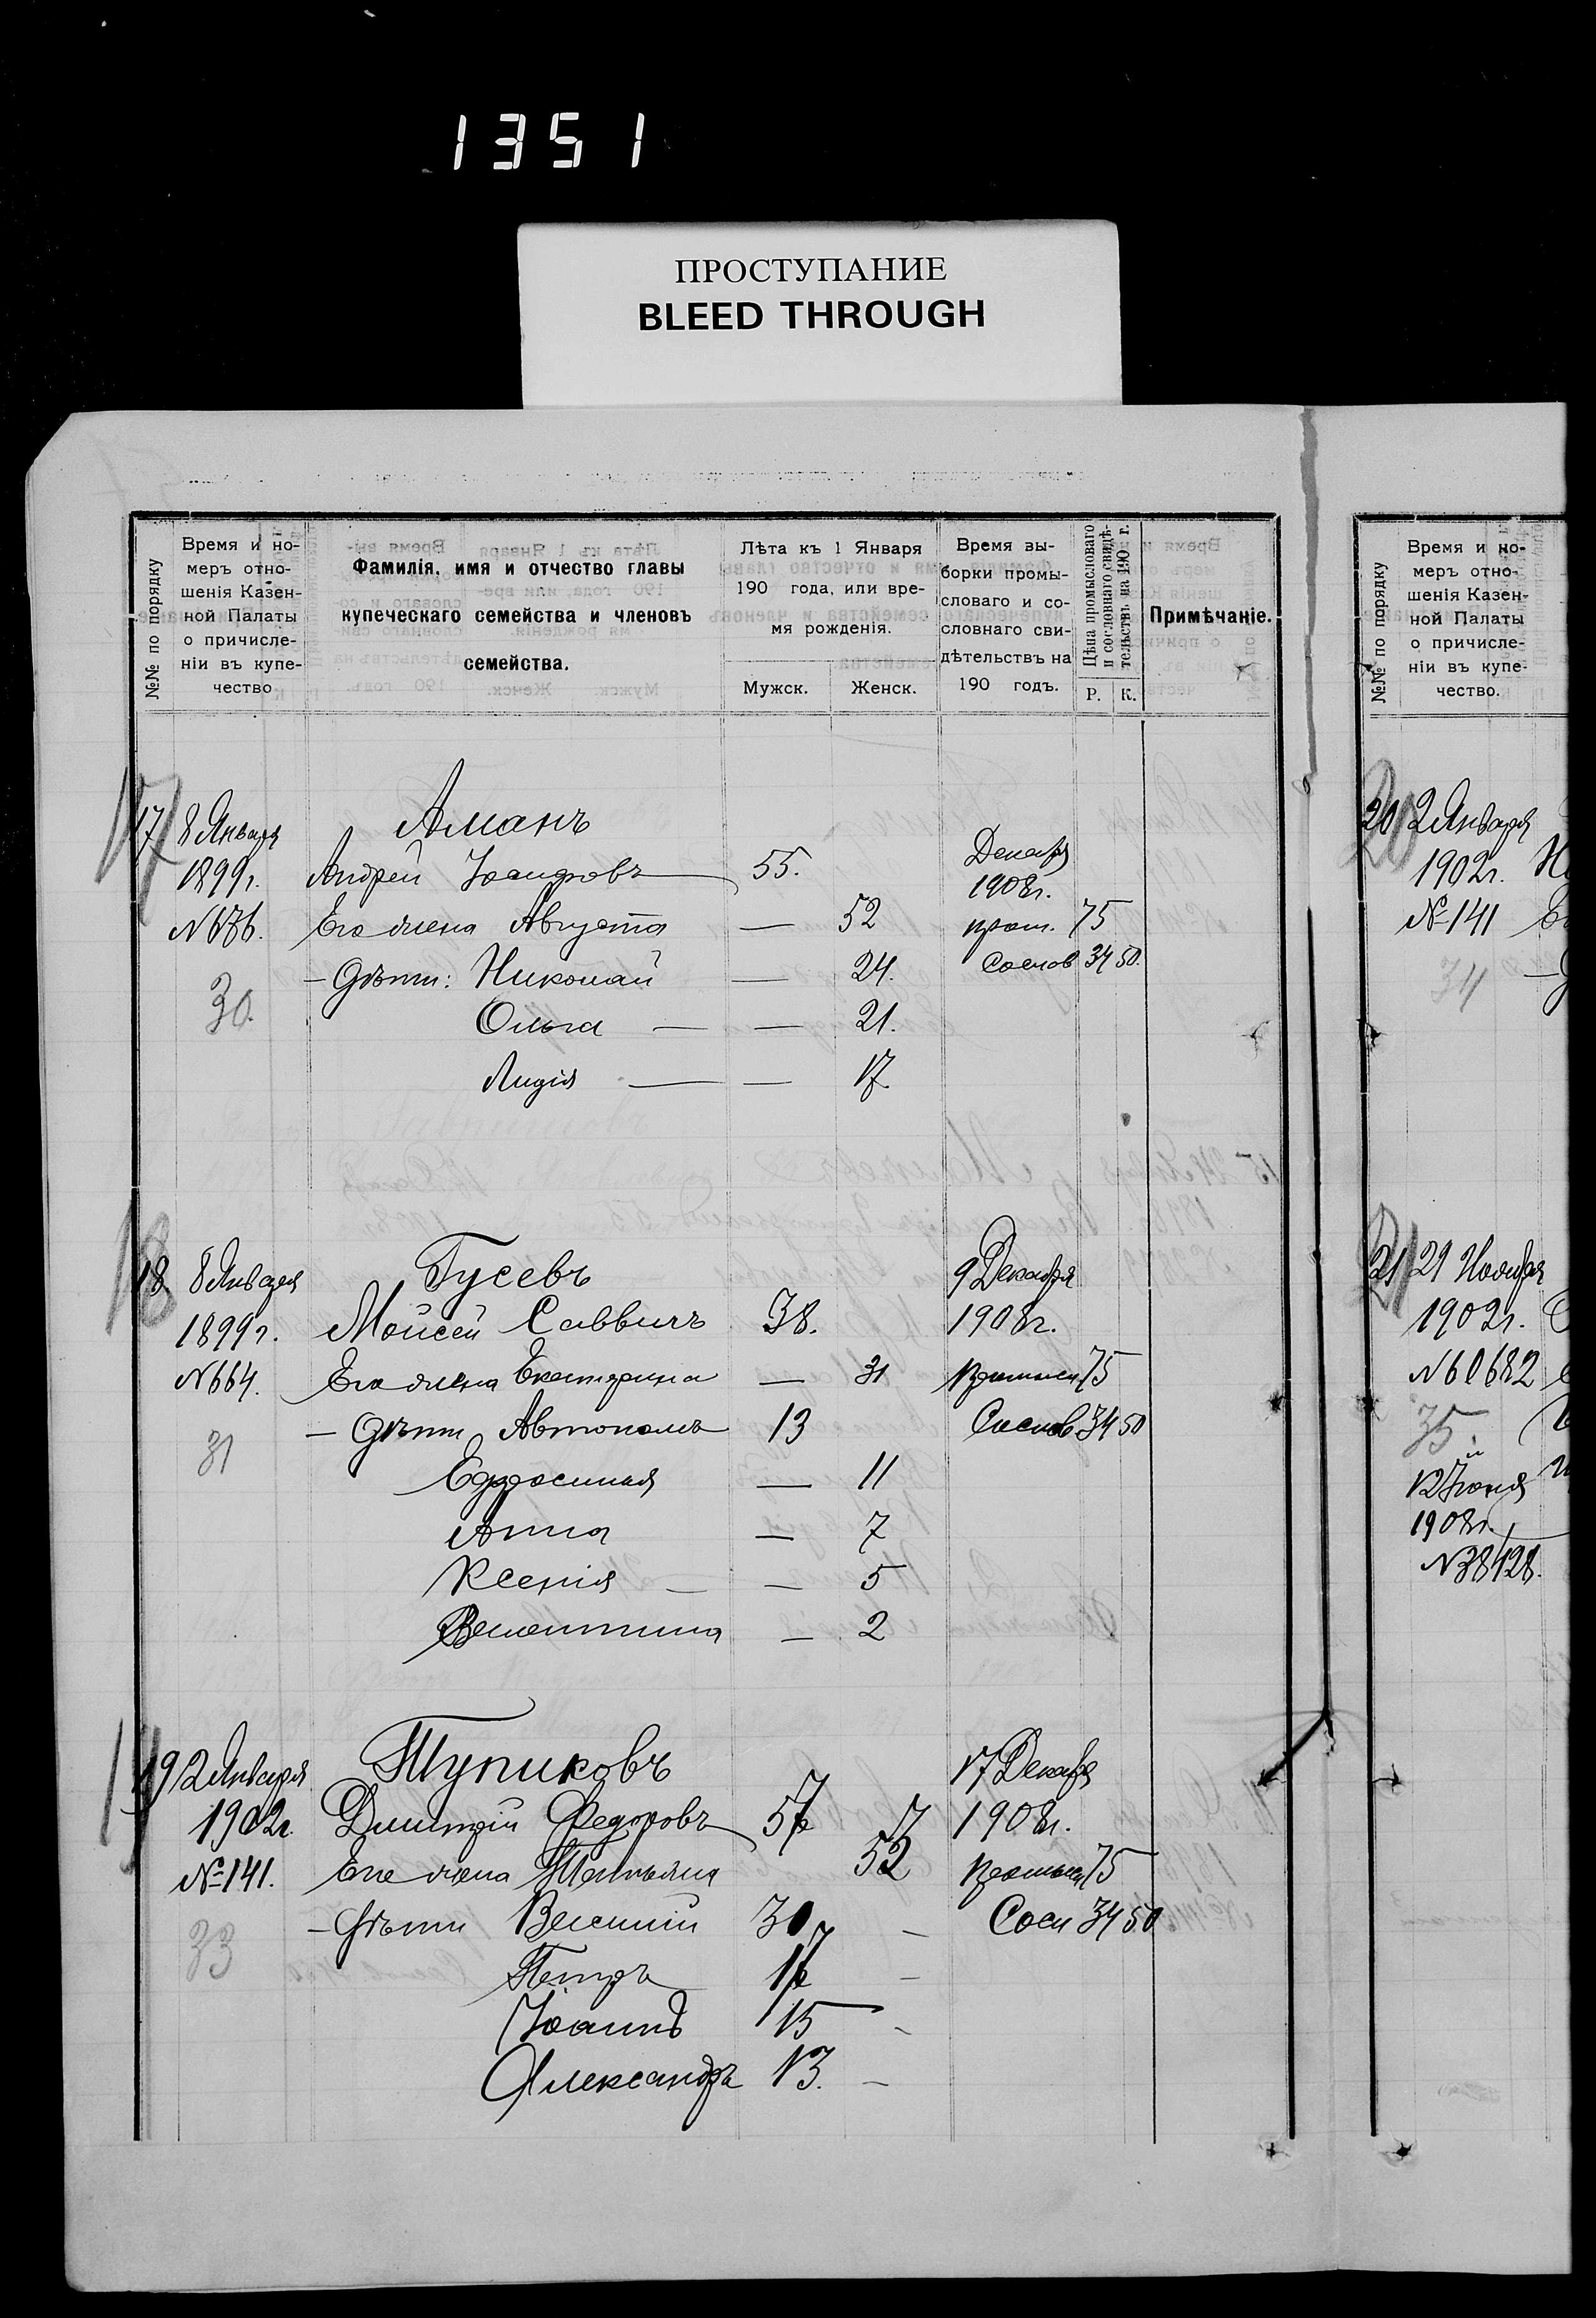 1351
ПРОСТУПАНИЕ
BLEED THROUGH
№№ по порядку
Время и но-
меръ отно-
шенія Казен-
ной Палаты
о причисле-
ніи въ купе-
чество
Фамилія, имя и отчество главы
купеческаго семейства и членовъ
семейства.
Лѣта къ 1 Января
190 года, или вре-
мя рожденія.
Мужск. Женск.
Время вы-
борки промы-
словаго и со-
словнаго сви-
дѣтельствъ на
190 годъ.
Цѣна промысловаго
и сословнаго свидѣ-
тельствъ на 190 г.
Р. К.
Примѣчаніе.
17 8 Января Аманъ
1899г. Андрей Іосифовъ 55. Декабря 1908г.
Его жена Августа — 52 пром. 75
30. — Дѣти: Николай — 24. Сослов 34 50.
Ольга — — 21.
Лидія — — 17
18 8 Января Гусевъ 9 Декабря
1899г. Моисей Саввичъ 38. 1908г.
№664. Его жена Екатерина — 31 промысл 75
31 — Дѣти Автономъ 13 Сослов 34 50
Ефросинья — 11
Анна — 7
Ксенія — — 5
Валентина — 2
19 2 Января Тупиковъ 17 Декабря
1902г. Дмитрій Федоровъ 57 1908г.
№141. Его жена Татьяна 52 промысл 75
33 — Дѣти Василій 30 — Сосл 34 50
Петръ 17 —
Іоаннъ 15 -
Александръ 13. —
№№ по порядку
Время и но-
меръ отно-
шенія Казен-
ной Палаты
о причисле-
ніи въ купе-
чество.
20 2 Января
1902г.
№141
34
21 29 Ноября
1902г.
№60682
35.
и
12 Іюня
1908г.
№38128.